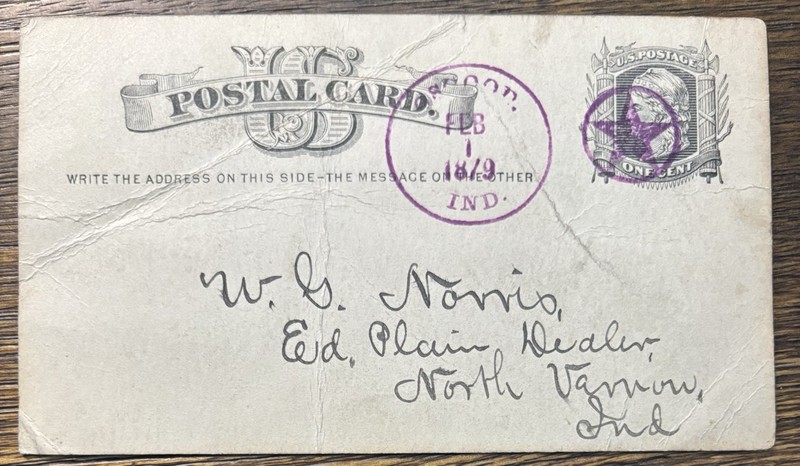 US
POSTAL CARD.
WRITE THE ADDRESS ON THIS SIDE-THE MESSAGE ON THE OTHER
U.S. POSTAGE
ONE CENT
FEB
1
1879
IND.
W. G. Norris,
Ed, Plain Dealer,
North Varnon,
Ind